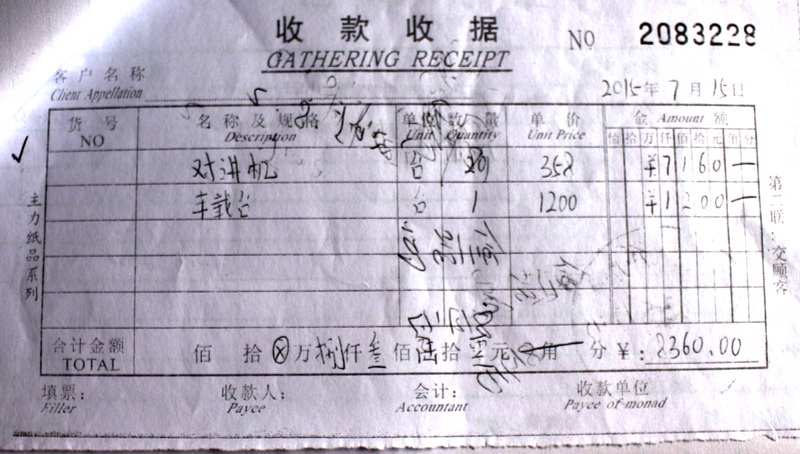 收款收据 NO 2083228
GATHERING RECEIPT
客户名称 2015年7月15日
Client Appellation
货号 名称及规格 单位 数量 单价 金 Amount 额
NO Description Unit Quantity Unit Price 佰拾万仟佰拾元角分
对讲机 台 20 358 ¥7160—
车载台 台 1 1200 ¥1200—
主力纸品系列
第二联：交顾客
合计金额 佰 拾 ⊗ 万 捌 仟 叁 佰 陆 拾 元 角 分 ¥：8360.00
TOTAL
填票： 收款人： 会计： 收款单位
Filler Payee Accountant Payee of monad